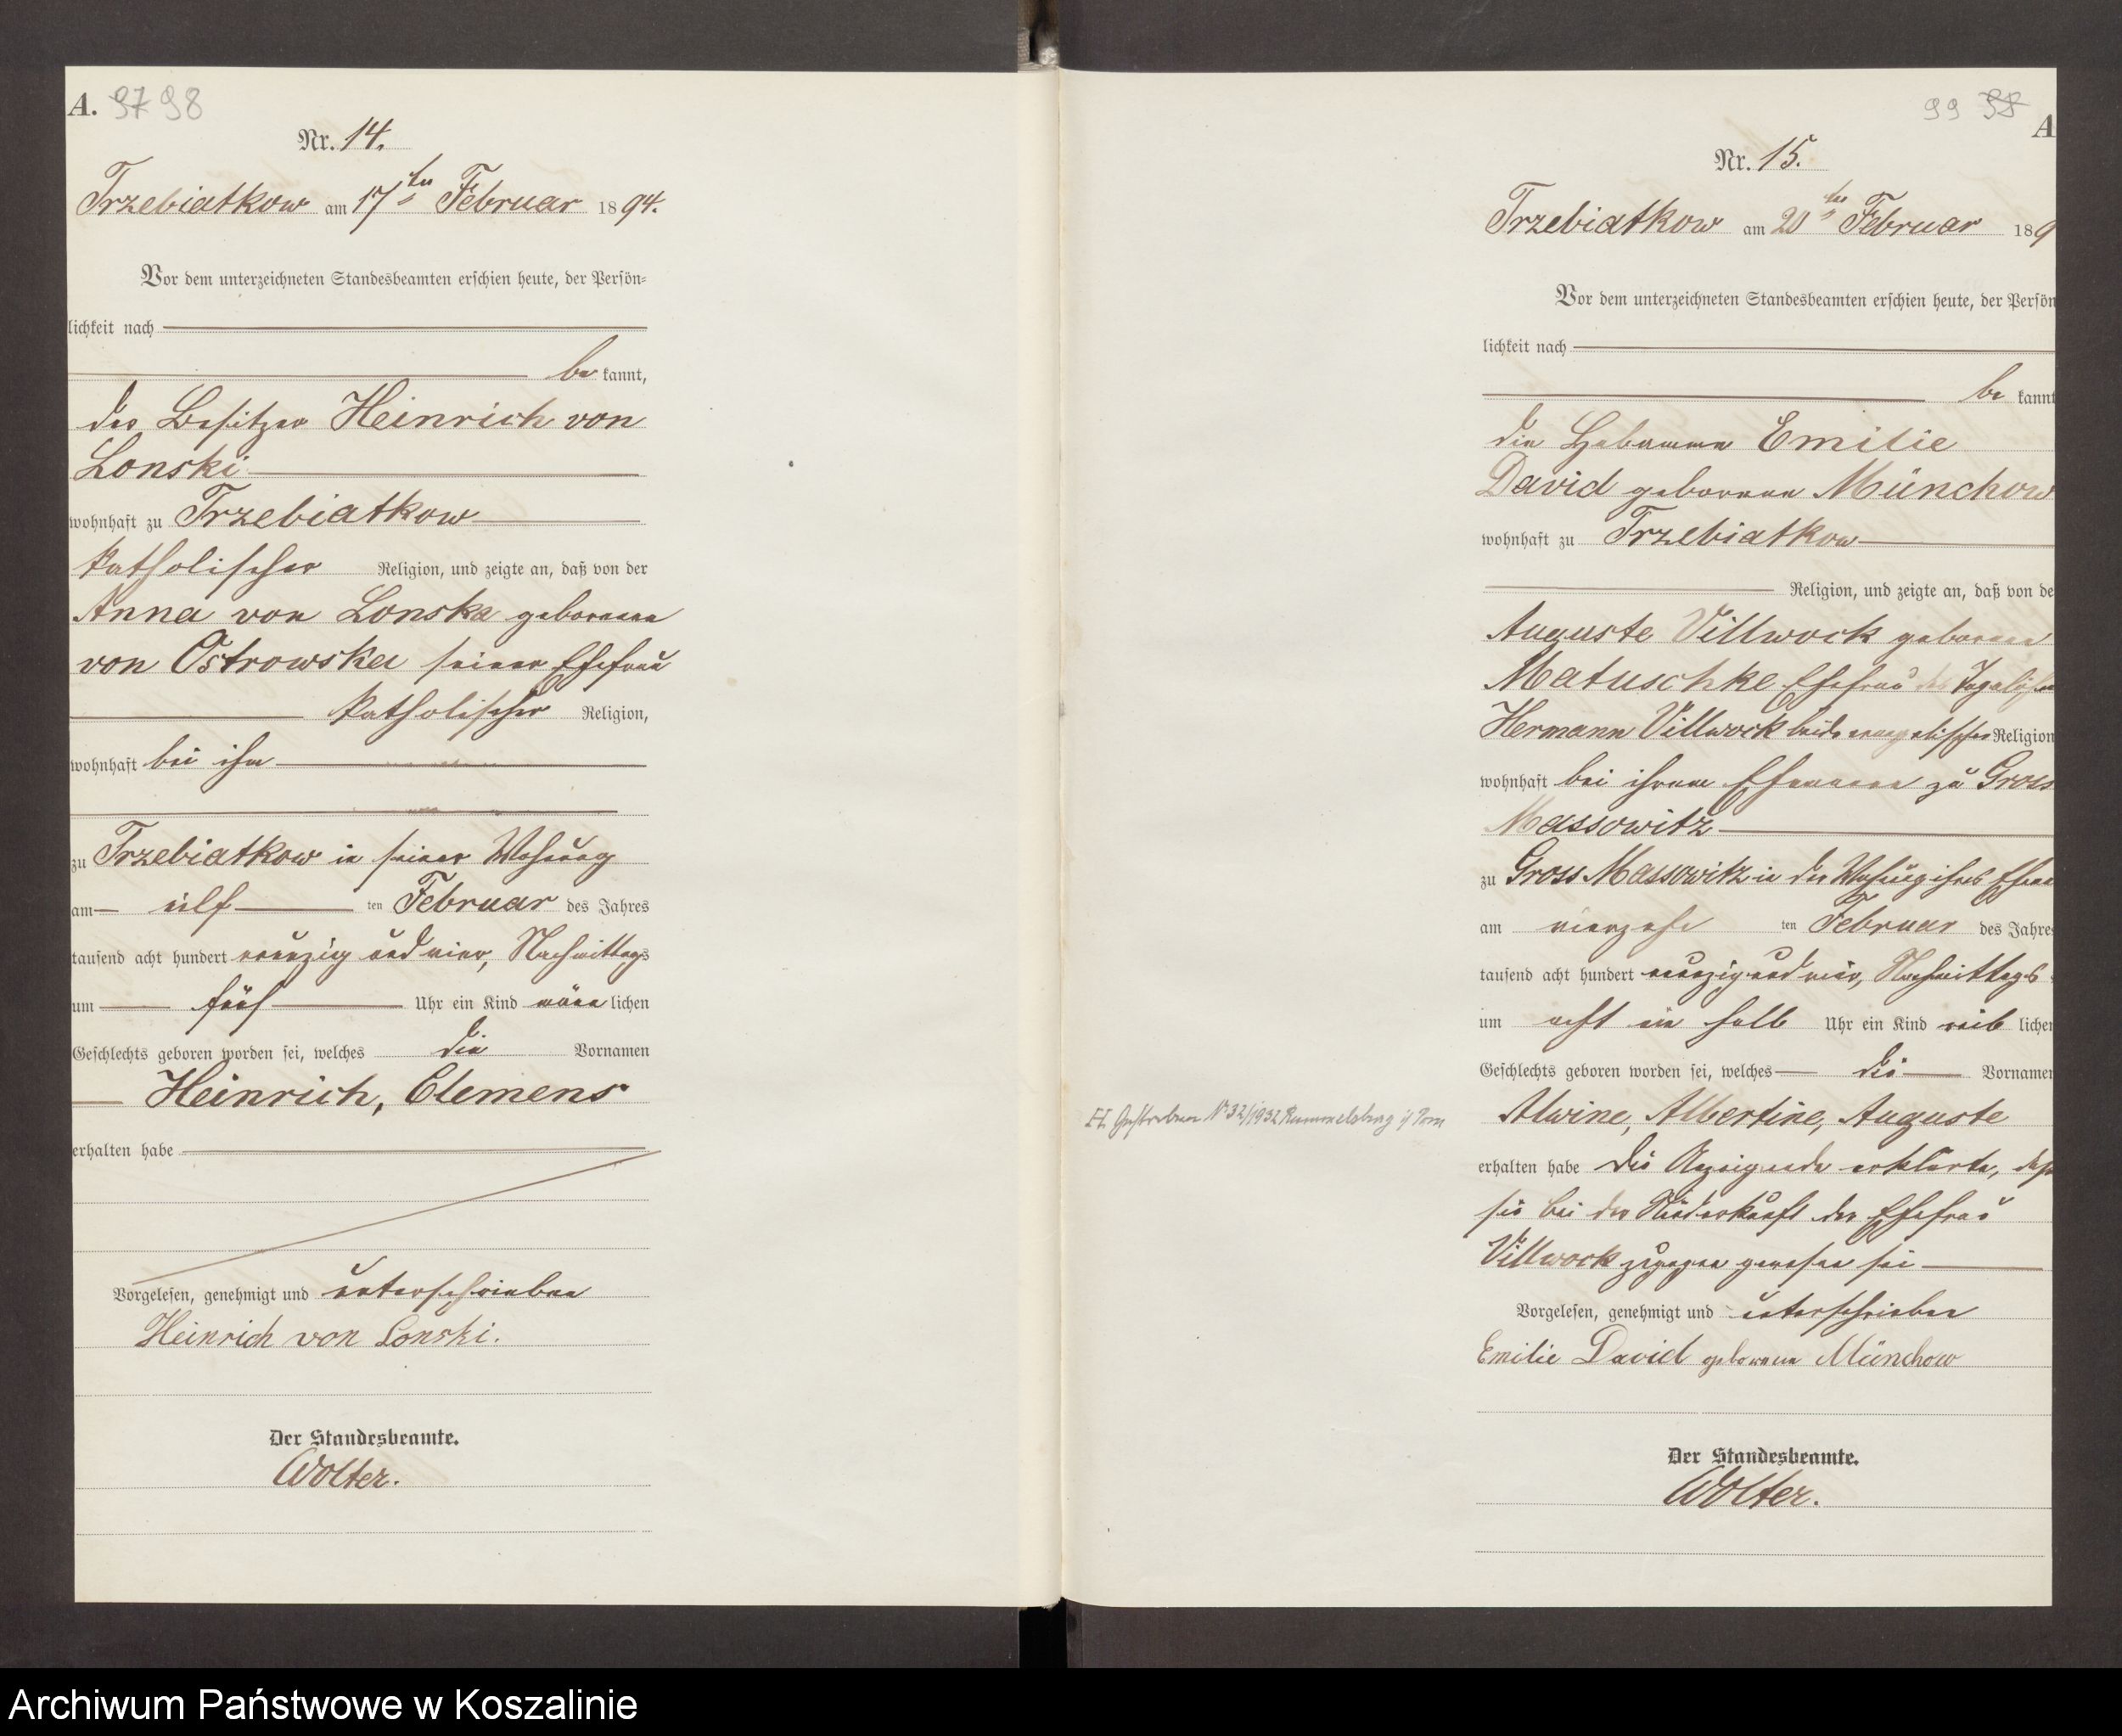 A. 97 98
Nr. 14.
Trzebiatkow am 17ten Februar 1894.
Vor dem unterzeichneten Standesbeamten erschien heute, der Persön-
lichkeit nach
be kannt,
der Besitzer Heinrich von
Lonski
wohnhaft zu Trzebiatkow
katholischer Religion, und zeigte an, daß von der
Anna von Lonska geborenen
von Ostrowska seiner Ehefrau
katholischer Religion,
wohnhaft bei ihm
zu Trzebiatkow in seiner Wohnung
am eilf ten Februar des Jahres
tausend acht hundert neunzig und vier, Nachmittags
um fünf Uhr ein Kind männ lichen
Geschlechts geboren worden sei, welches die Vornamen
Heinrich, Clemens
erhalten habe
Vorgelesen, genehmigt und unterschrieben
Heinrich von Lonski.
Der Standesbeamte.
Wolter.
99 98
A
Nr. 15.
Trzebiatkow am 20ten Februar 189
Vor dem unterzeichneten Standesbeamten erschien heute, der Persön
lichkeit nach
be kannt
die Hebamme Emilie
David geborene Münchow
wohnhaft zu Trzebiatkow
Religion, und zeigte an, daß von de
Auguste Villwock geborene
Matuschke Ehefrau des Tagelöhner
Hermann Villwock beide evangelischer Religion
wohnhaft bei ihrem Ehemanne zu Gross
Massowitz
zu Gross Massowitz in der Wohnung ihres Ehem
am vierzehn ten Februar des Jahres
tausend acht hundert neunzig und vier, Nachmittags
um acht ein halb Uhr ein Kind weib lichen
Geschlechts geboren worden sei, welches die Vornamen
Alwine, Albertine, Auguste
erhalten habe Die Anzeigende erklärte, daß
sie bei der Niederkunft der Ehefrau
Villwock zugegen gewesen sei
Vorgelesen, genehmigt und unterschrieben
Emilie David geborene Münchow
Der Standesbeamte.
Wolter.
Gestorben Nr 32/1932 Rummelsburg i/ Pom
Archiwum Państwowe w Koszalinie